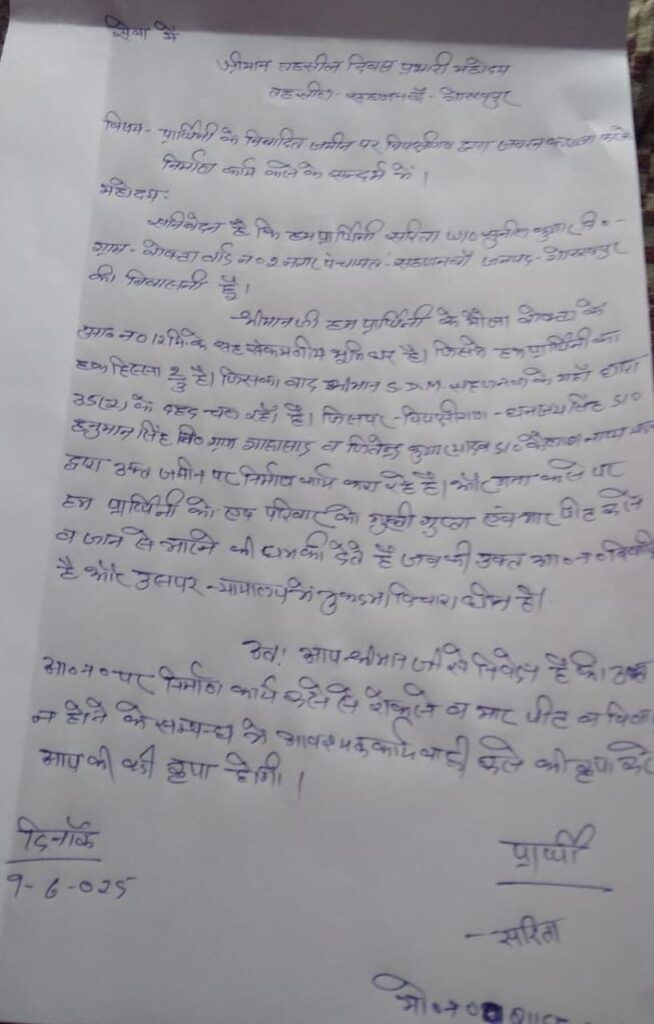 सेवा में
श्रीमान तहसील दिवस प्रभारी महोदय
तहसील- सहजनवाँ- गोरखपुर
विषय- प्रार्थिनी के विवादित जमीन पर विपक्षीगण द्वारा जबरन कब्जा करके
निर्माण कार्य करने के सन्दर्भ में।
महोदय:
सविनेदन है कि हम प्रार्थिनी सरिता W/O सुनील कुमार नि०-
ग्राम- वार्ड न० 2 नगर पंचायत सहजनवाँ जनपद- गोरखपुर
की निवासनी हूँ।
श्रीमान जी हम प्रार्थिनी के मौजा के
न० 12 मि के सह भूमिधर है। जिसमें हम प्रार्थिनी का
हक हिस्सा है। जिसका वाद श्रीमान S.D.M. सहजनवां के यहाँ धारा
35(2) के तहद चल रहा है। जिसपर- विपक्षीगण- धनन्जय सिंह S/O
हनुमान सिंह नि० ग्राम व जितेन्द्र कुमार यादव S/O
द्वारा उक्त जमीन पर निर्माण कार्य करा रहे है। और मना करने पर
हम प्रार्थिनी को एवं परिवार को गुप्ता एवं मार पीट करने
व जान से मारने की धमकी देते है जबकी उक्त आ०न० विवादि
है और उसपर- न्यायालय में मुकदमा विचाराधीन है।
अतः आप श्रीमान जी से निवेदन है कि उक्त
आ०न० पर निर्माण कार्य करने से रोकने व मार पीट व विवा
न होने के सम्बन्ध के आवश्यक कार्यवाही करने की कृपा करें
आप की बड़ी कृपा होगी।
दिनाँक
9-6-025
प्रार्थी
- सरिता
मो०न०